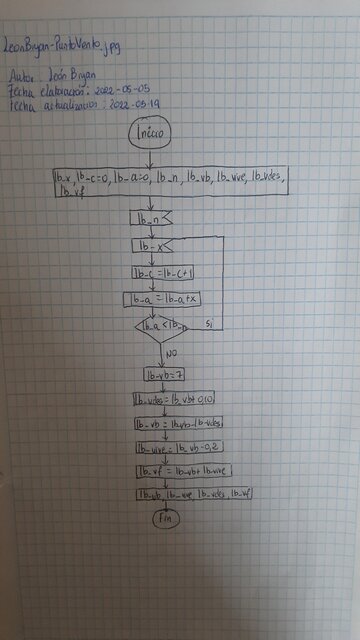 LeonBryan-PuntoVenta.jpg
Autor: León Bryan
Fecha elaboración: 2022-05-05
Fecha actualización: 2022-05-19
Inicio
lb_x, lb_c=0, lb_a=0, lb_n, lb_vb, lb_vive, lb_vdes,
lb_vf
lb_n
lb_x
lb_c=lb_c+1
lb_a=lb_a+x
lb_a<lb_n
si
NO
lb_vb=7
lb_vdes=lb_vb*0,10
lb_vb=lb_vb-lb_vdes
lb_vive=lb_vb-0,2
lb_vf=lb_vb+lb_vive
lb_vb, lb_vive, lb_vdes, lb_vf
Fin